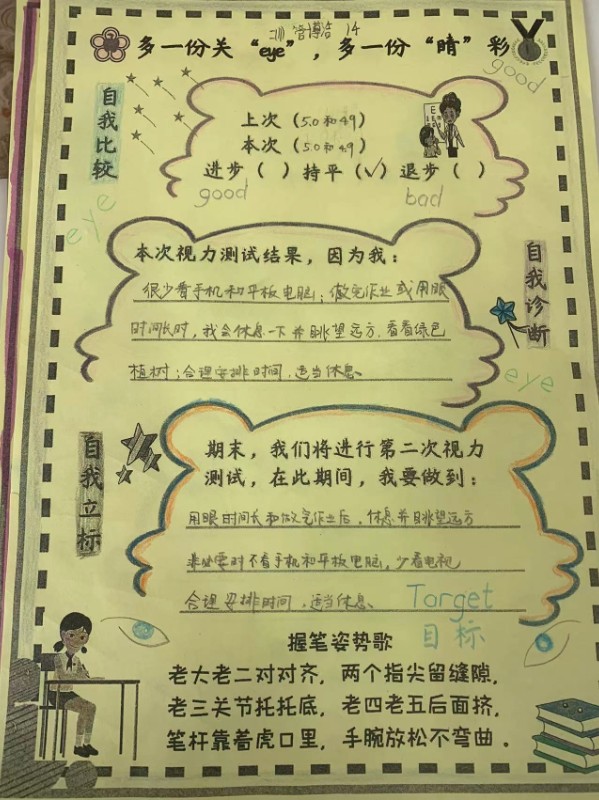 14
多一份关“eye”，多一份“睛”彩
good
自我比较
上次（5.0和4.9）
本次（5.0和4.9）
进步（ ）持平（✓）退步（ ）
good
bad
eye
本次视力测试结果，因为我：
很少看手机和平板电脑；做完作业或用眼
时间长时，我会休息一下并眺望远方，看看绿色
植树；合理安排时间，适当休息。
自我诊断
eye
自我立标
期末，我们将进行第二次视力
测试，在此期间，我要做到：
用眼时间长和做完作业后，休息并眺望远方
非必要时不看手机和平板电脑，少看电视
合理安排时间，适当休息。
Target
目标
握笔姿势歌
老大老二对对齐，两个指尖留缝隙，
老三关节托托底，老四老五后面挤，
笔杆靠着虎口里，手腕放松不弯曲。